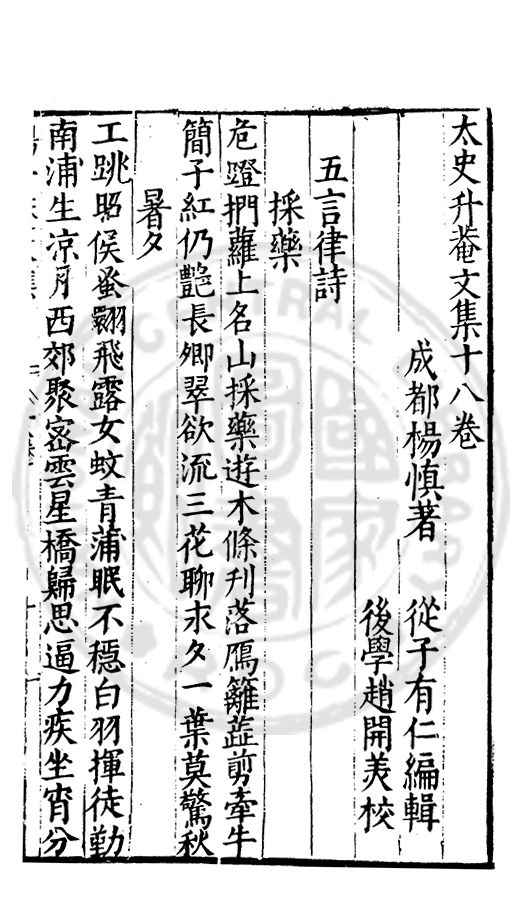 太史升菴文集十八卷
成都楊慎著 從子有仁編輯
後學趙開美校
五言律詩
採藥
危蹬捫蘿上名山採藥遊木條刋落鴈籬蓝剪牽牛
簡子紅仍艶長卿翠欲流三花聊求夕一葉莫驚秋
暑夕
工跳昭侯蚤翾飛露女蚊青蒲眠不穩白羽揮徒勤
南浦生凉月西郊聚密雲星橋歸思逼力疾坐宵分
CENTRAL